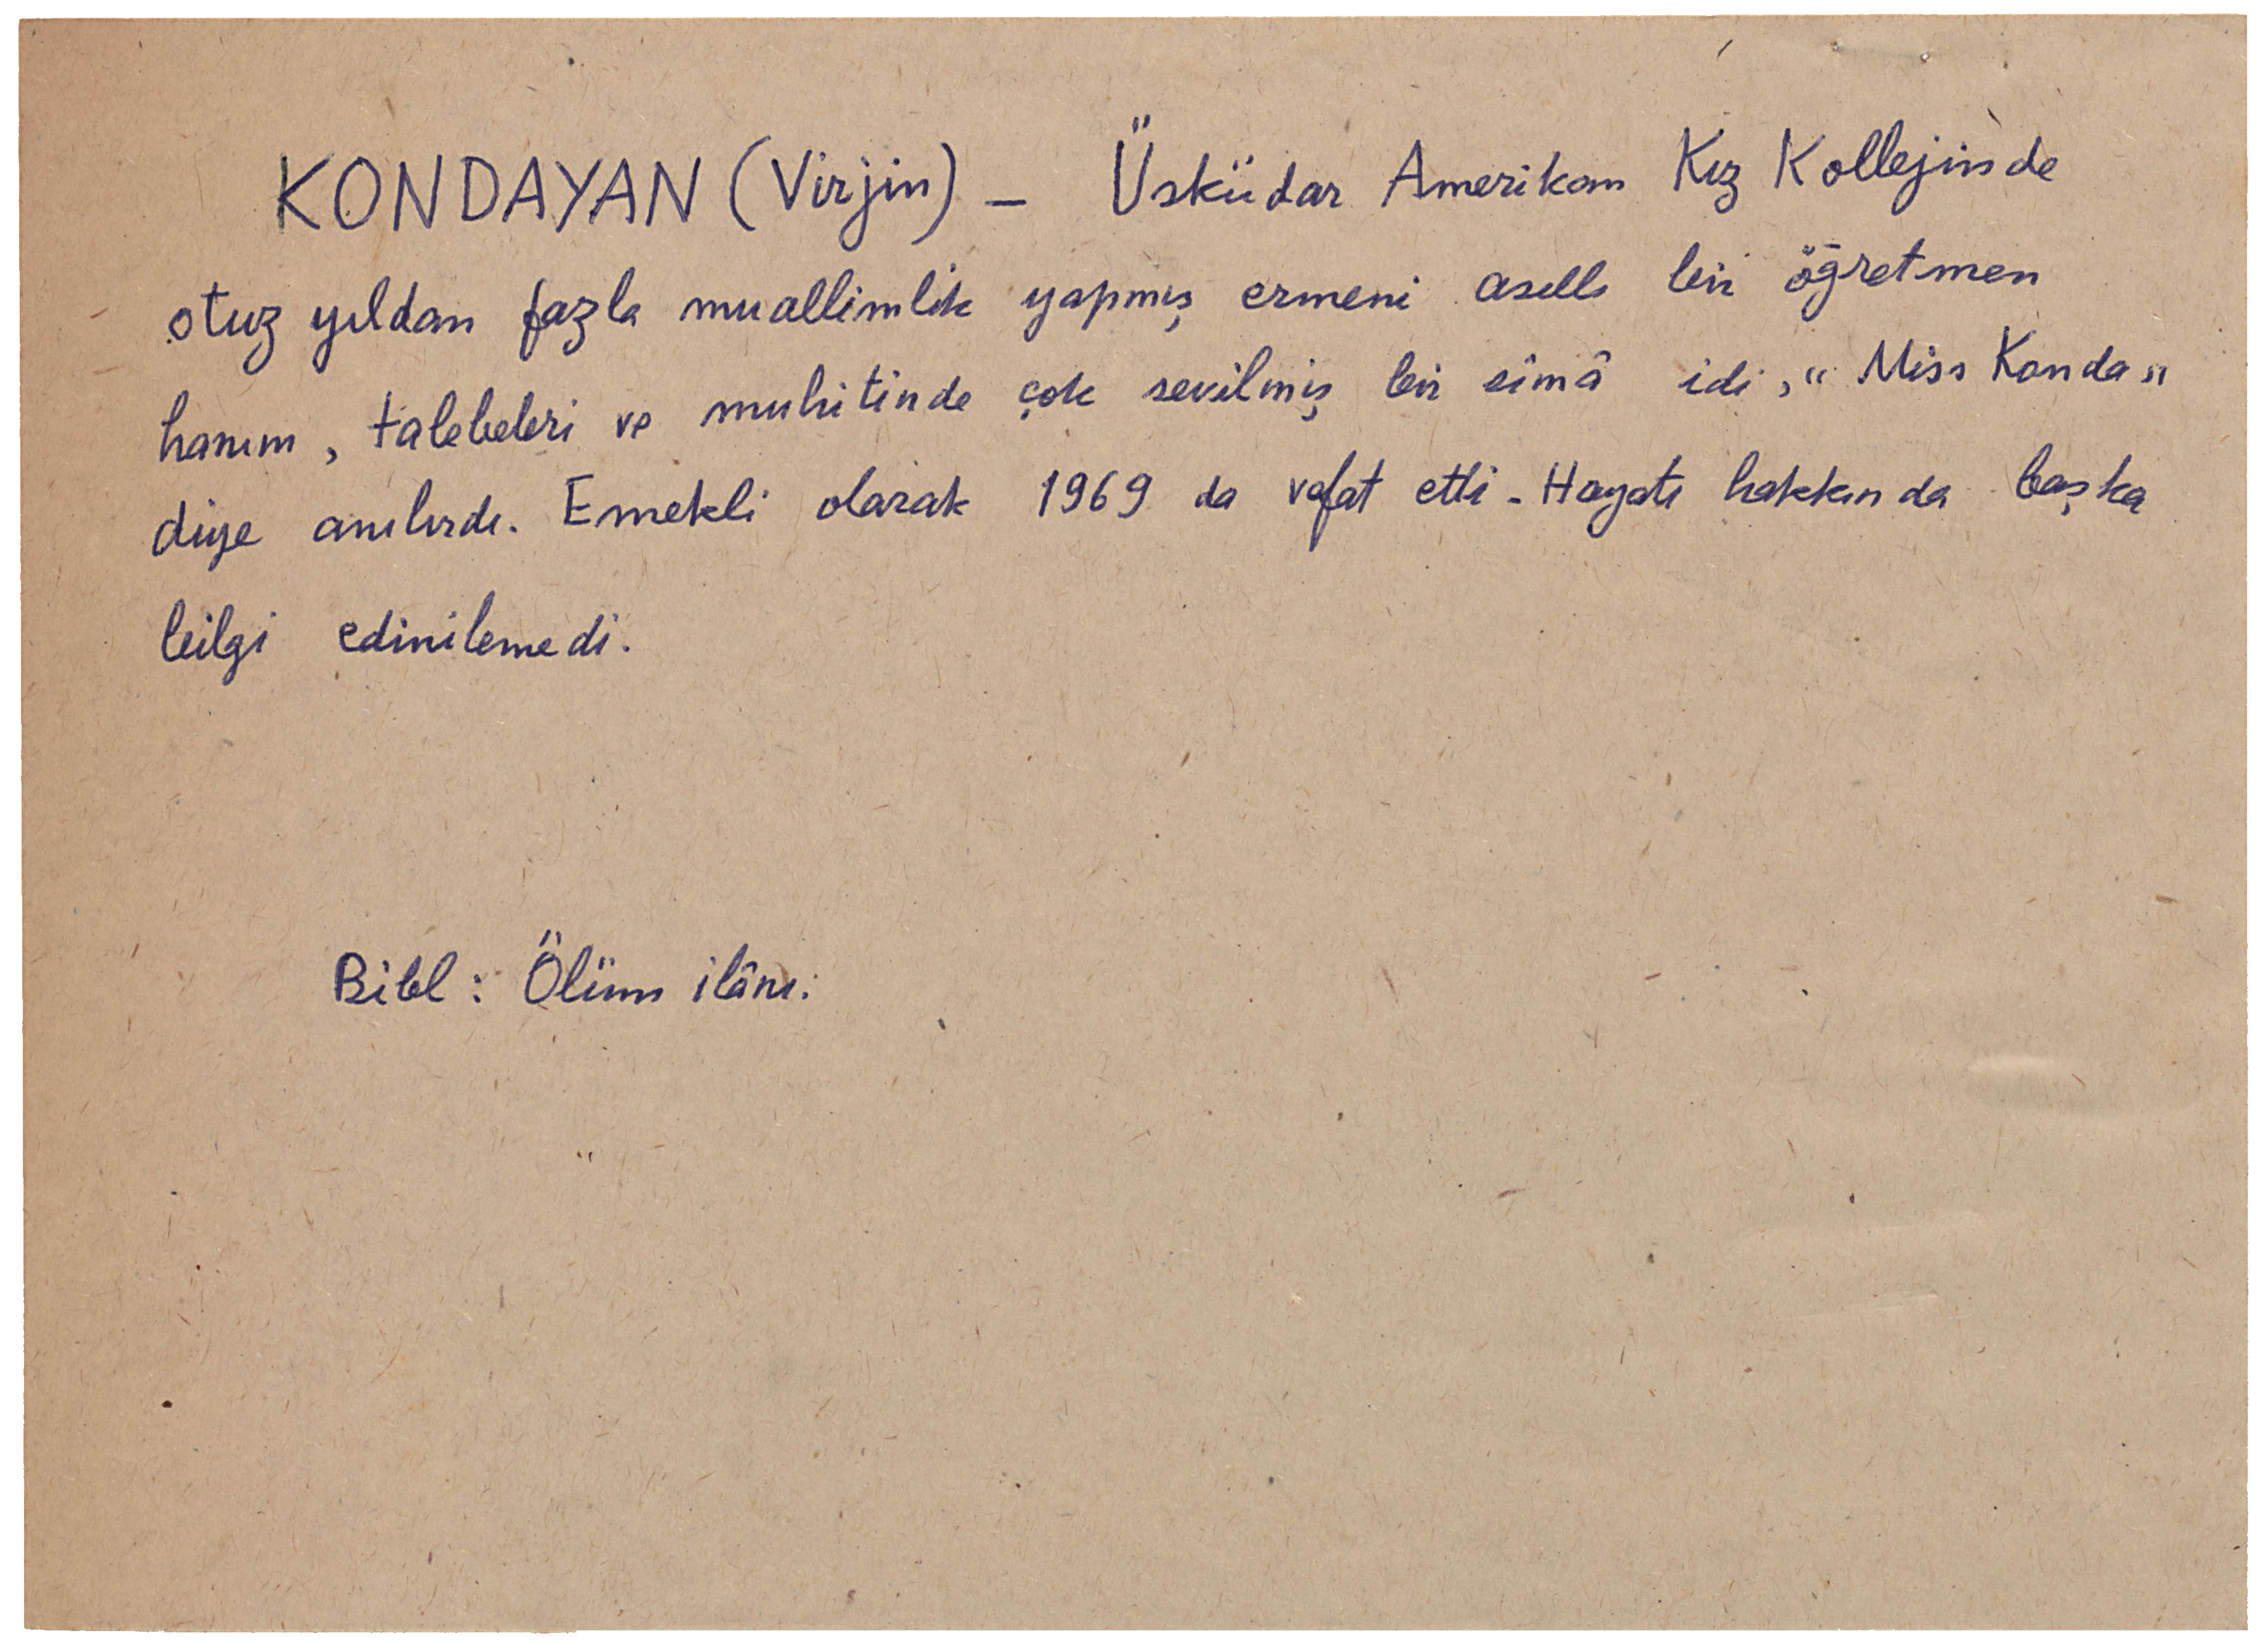 KONDAYAN (Virjin) - Üsküdar Amerikan Kız Kollejinde
otuz yıldan fazla muallimlik yapmış ermeni asıllı bir öğretmen
hanım, talebeleri ve muhitinde çok sevilmiş bir sîmâ idi, "Miss Konda"
diye anılırdı. Emekli olarak 1969 da vefat etti - Hayatı hakkında başka
bilgi edinilemedi.
Bibl: Ölüm ilânı.